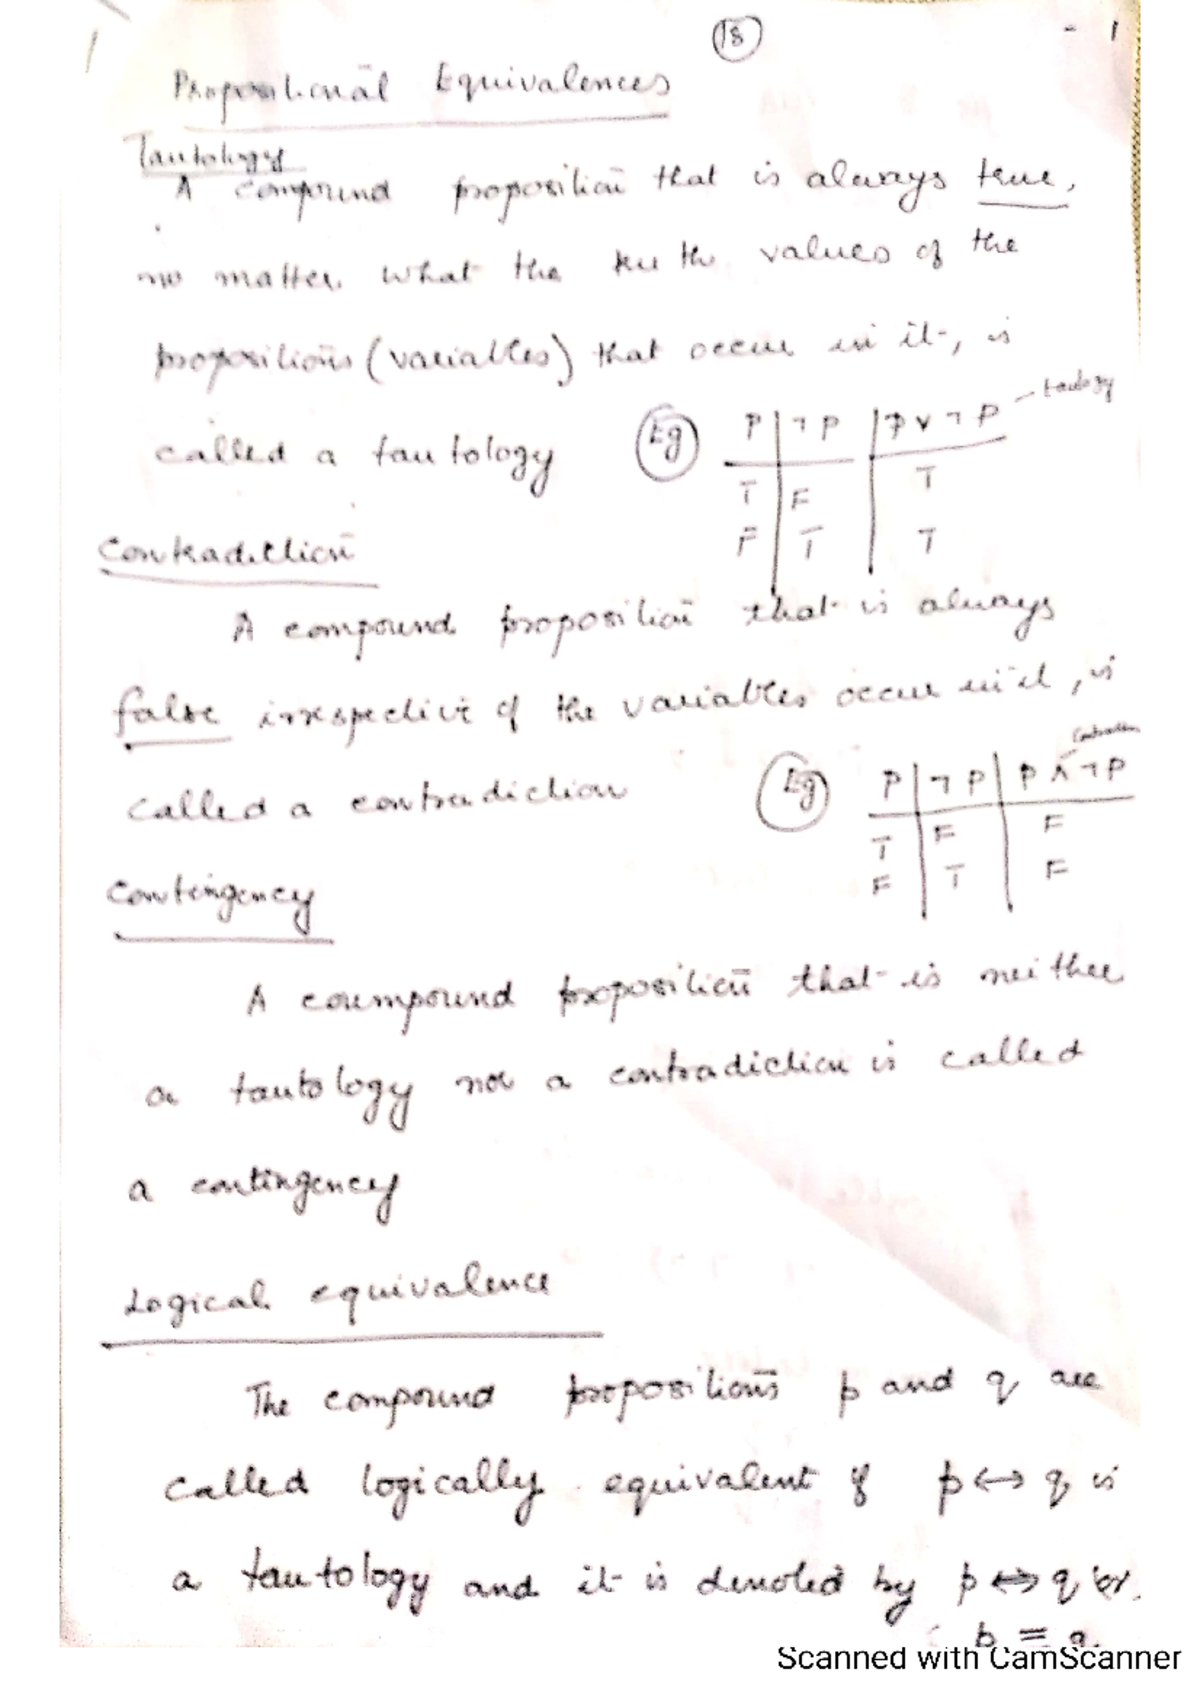 18
- 1
Propositional Equivalences
Tautology
A compound proposition that is always true,
no matter what the truth values of the
propositions (variables) that occur in it, is
called a tautology
Eg
P | ¬P | P ∨ ¬P - tautology
T | F | T
F | T | T
Contradiction
A compound proposition that is always
false irrespective of the variables occur in it, is
called a contradiction
Eg
Contradiction
P | ¬P | P ∧ ¬P
T | F | F
F | T | F
Contingency
A coumpound proposition that is neither
a tautology nor a contradiction is called
a contingency
Logical equivalence
The compound propositions p and q are
called logically equivalent if p ↔ q is
a tautology and it is denoted by p ⇔ q or
p ≡ q.
Scanned with CamScanner